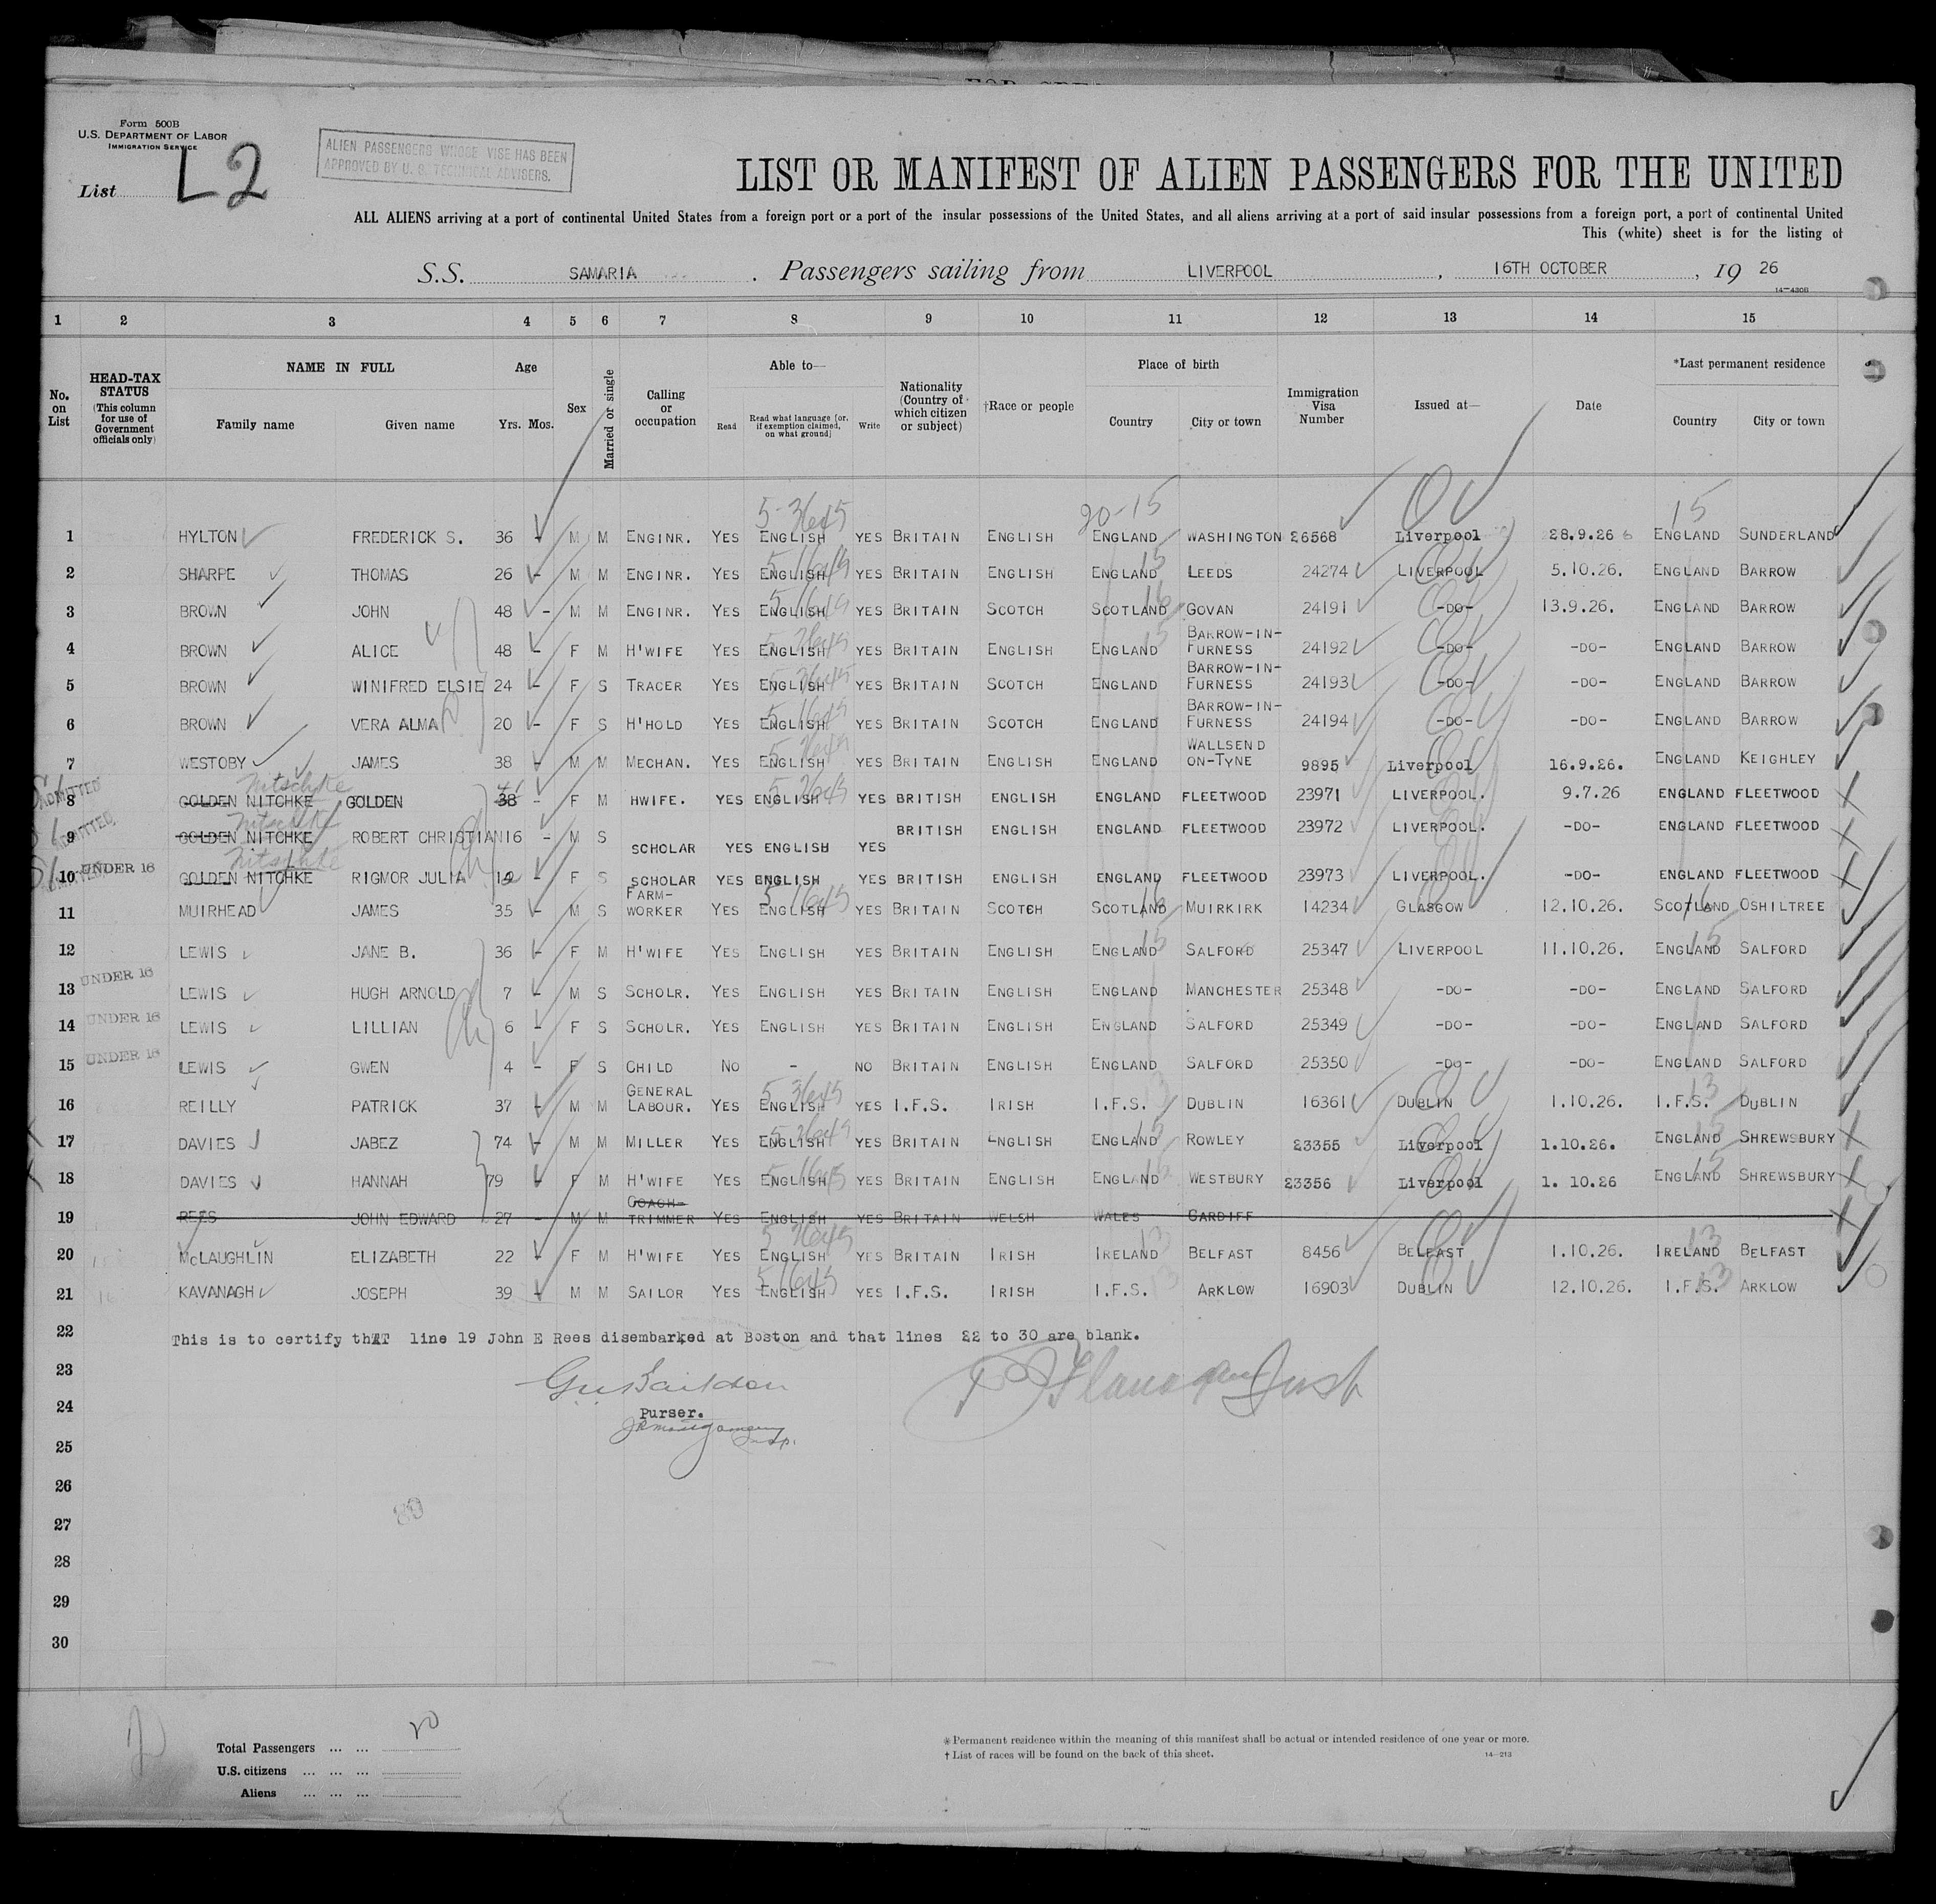 Form 500B
U.S. DEPARTMENT OF LABOR
IMMIGRATION SERVICE
List L2
ALIEN PASSENGERS WHOSE VISE HAS BEEN
APPROVED BY U. S. TECHNICAL ADVISERS.
LIST OR MANIFEST OF ALIEN PASSENGERS FOR THE UNITED
ALL ALIENS arriving at a port of continental United States from a foreign port or a port of the insular possessions of the United States, and all aliens arriving at a port of said insular possessions from a foreign port, a port of continental United
This (white) sheet is for the listing of
S.S. SAMARIA. Passengers sailing from LIVERPOOL, 16TH OCTOBER, 19 26
14-430B
1 2 3 4 5 6 7 8 9 10 11 12 13 14 15
No. on List
HEAD-TAX STATUS (This column for use of Government officials only)
NAME IN FULL
Family name Given name
Age
Yrs. Mos.
Sex
Married or single
Calling or occupation
Able to—
Read Read what language (or, if exemption claimed, on what ground) Write
Nationality (Country of which citizen or subject)
†Race or people
Place of birth
Country City or town
Immigration Visa Number
Issued at—
Date
*Last permanent residence
Country City or town
5-3645 20-15 15
1 HYLTON FREDERICK S. 36 - M M ENGINR. YES ENGLISH YES BRITAIN ENGLISH ENGLAND WASHINGTON 26568 Liverpool 28.9.26 ENGLAND SUNDERLAND
2 SHARPE THOMAS 26 - M M ENGINR. YES ENGLISH YES BRITAIN ENGLISH ENGLAND LEEDS 24274 LIVERPOOL 5.10.26. ENGLAND BARROW
3 BROWN JOHN 48 - M M ENGINR. YES ENGLISH YES BRITAIN SCOTCH SCOTLAND GOVAN 24191 -DO- 13.9.26. ENGLAND BARROW
4 BROWN ALICE 48 - F M H'WIFE YES ENGLISH YES BRITAIN ENGLISH ENGLAND BARROW-IN-FURNESS 24192 -DO- -DO- ENGLAND BARROW
5 BROWN WINIFRED ELSIE 24 - F S TRACER YES ENGLISH YES BRITAIN SCOTCH ENGLAND BARROW-IN-FURNESS 24193 -DO- -DO- ENGLAND BARROW
6 BROWN VERA ALMA 20 - F S H'HOLD YES ENGLISH YES BRITAIN SCOTCH ENGLAND BARROW-IN-FURNESS 24194 -DO- -DO- ENGLAND BARROW
7 WESTOBY JAMES 38 - M M MECHAN. YES ENGLISH YES BRITAIN ENGLISH ENGLAND WALLSEND ON-TYNE 9895 Liverpool 16.9.26. ENGLAND KEIGHLEY
Nitschke
ADMITTED
8 GOLDEN NITCHKE GOLDEN 38 - F M HWIFE. YES ENGLISH YES BRITISH ENGLISH ENGLAND FLEETWOOD 23971 LIVERPOOL. 9.7.26 ENGLAND FLEETWOOD
Nitschke
ADMITTED
9 GOLDEN NITCHKE ROBERT CHRISTIAN 16 - M S SCHOLAR YES ENGLISH YES BRITISH ENGLISH ENGLAND FLEETWOOD 23972 LIVERPOOL. -DO- ENGLAND FLEETWOOD
Nitschke
ADMITTED
10 UNDER 16 GOLDEN NITCHKE RIGMOR JULIA 12 - F S SCHOLAR YES ENGLISH YES BRITISH ENGLISH ENGLAND FLEETWOOD 23973 LIVERPOOL. -DO- ENGLAND FLEETWOOD
11 MUIRHEAD JAMES 35 - M S FARM-WORKER YES ENGLISH YES BRITAIN SCOTCH SCOTLAND MUIRKIRK 14234 GLASGOW 12.10.26. SCOTLAND OSHILTREE
12 LEWIS JANE B. 36 - F M H'WIFE YES ENGLISH YES BRITAIN ENGLISH ENGLAND SALFORD 25347 LIVERPOOL 11.10.26. ENGLAND SALFORD
13 UNDER 16 LEWIS HUGH ARNOLD 7 - M S SCHOLR. YES ENGLISH YES BRITAIN ENGLISH ENGLAND MANCHESTER 25348 -DO- -DO- ENGLAND SALFORD
14 UNDER 16 LEWIS LILLIAN 6 - F S SCHOLR. YES ENGLISH YES BRITAIN ENGLISH ENGLAND SALFORD 25349 -DO- -DO- ENGLAND SALFORD
15 UNDER 16 LEWIS GWEN 4 - F S CHILD NO - NO BRITAIN ENGLISH ENGLAND SALFORD 25350 -DO- -DO- ENGLAND SALFORD
16 REILLY PATRICK 37 - M M GENERAL LABOUR. YES ENGLISH YES I.F.S. IRISH I.F.S. DUBLIN 16361 DUBLIN 1.10.26. I.F.S. DUBLIN
17 DAVIES JABEZ 74 - M M MILLER YES ENGLISH YES BRITAIN ENGLISH ENGLAND ROWLEY 23355 Liverpool 1.10.26. ENGLAND SHREWSBURY
18 DAVIES HANNAH 79 - F M H'WIFE YES ENGLISH YES BRITAIN ENGLISH ENGLAND WESTBURY 23356 Liverpool 1. 10.26 ENGLAND SHREWSBURY
19 REES JOHN EDWARD 27 - M M COACH-TRIMMER YES ENGLISH YES BRITAIN WELSH WALES CARDIFF
20 McLAUGHLIN ELIZABETH 22 - F M H'WIFE YES ENGLISH YES BRITAIN IRISH IRELAND BELFAST 8456 BELFAST 1.10.26. IRELAND BELFAST
21 KAVANAGH JOSEPH 39 - M M SAILOR YES ENGLISH YES I.F.S. IRISH I.F.S. ARKLOW 16903 DUBLIN 12.10.26. I.F.S. ARKLOW
22 This is to certify thAT line 19 John E Rees disembarked at Boston and that lines 22 to 30 are blank.
23
24 Purser.
25
26
27
28
29
30
Total Passengers ... ... 20
U.S. citizens ... ... ...
Aliens ... ... ...
* Permanent residence within the meaning of this manifest shall be actual or intended residence of one year or more.
† List of races will be found on the back of this sheet.
14-213